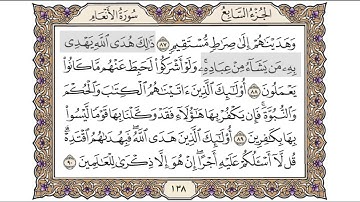 الجزء السابع
سورة الأنعام
وَهَدَيْنَٰهُمْ إِلَىٰ صِرَٰطٍ مُّسْتَقِيمٍ ٨٧ ذَٰلِكَ هُدَى ٱللَّهِ يَهْدِى
بِهِۦ مَن يَشَآءُ مِنْ عِبَادِهِۦ ۚ وَلَوْ أَشْرَكُوا۟ لَحَبِطَ عَنْهُم مَّا كَانُوا۟
يَعْمَلُونَ ٨٨ أُو۟لَٰٓئِكَ ٱلَّذِينَ ءَاتَيْنَٰهُمُ ٱلْكِتَٰبَ وَٱلْحُكْمَ
وَٱلنُّبُوَّةَ ۚ فَإِن يَكْفُرْ بِهَا هَٰٓؤُلَآءِ فَقَدْ وَكَّلْنَا بِهَا قَوْمًا لَّيْسُوا۟
بِهَا بِكَٰفِرِينَ ٨٩ أُو۟لَٰٓئِكَ ٱلَّذِينَ هَدَى ٱللَّهُ ۖ فَبِهُدَىٰهُمُ ٱقْتَدِهْ ۗ
قُل لَّآ أَسْـَٔلُكُمْ عَلَيْهِ أَجْرًا ۖ إِنْ هُوَ إِلَّا ذِكْرَىٰ لِلْعَٰلَمِينَ ٩٠
١٣٨